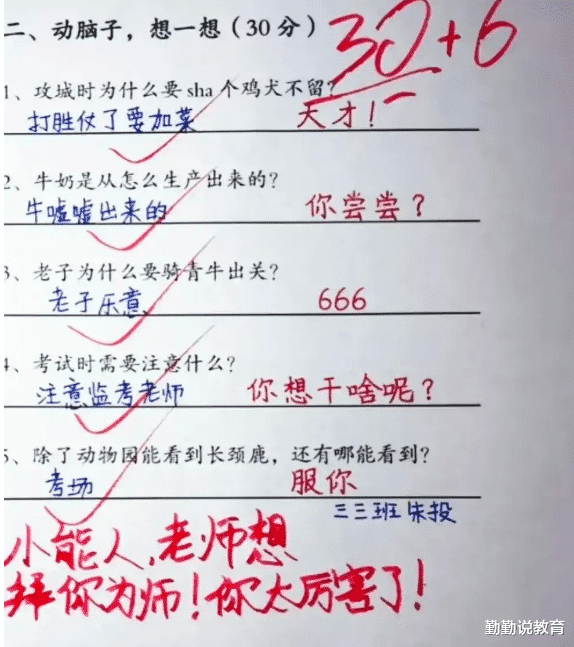 二、动脑子，想一想（30分） 30+6
1、攻城时为什么要sha个鸡犬不留？
打胜仗了要加菜 天才！
2、牛奶是从怎么生产出来的？
牛嘘嘘出来的 你尝尝？
3、老子为什么要骑青牛出关？
老子乐意、 666
4、考试时需要注意什么？
注意监考老师 你想干啥呢？
5、除了动物园能看到长颈鹿，还有哪能看到？
考场 服你
三三班 朱投
小能人，老师想
拜你为师！你太厉害了！
勤勤说教育